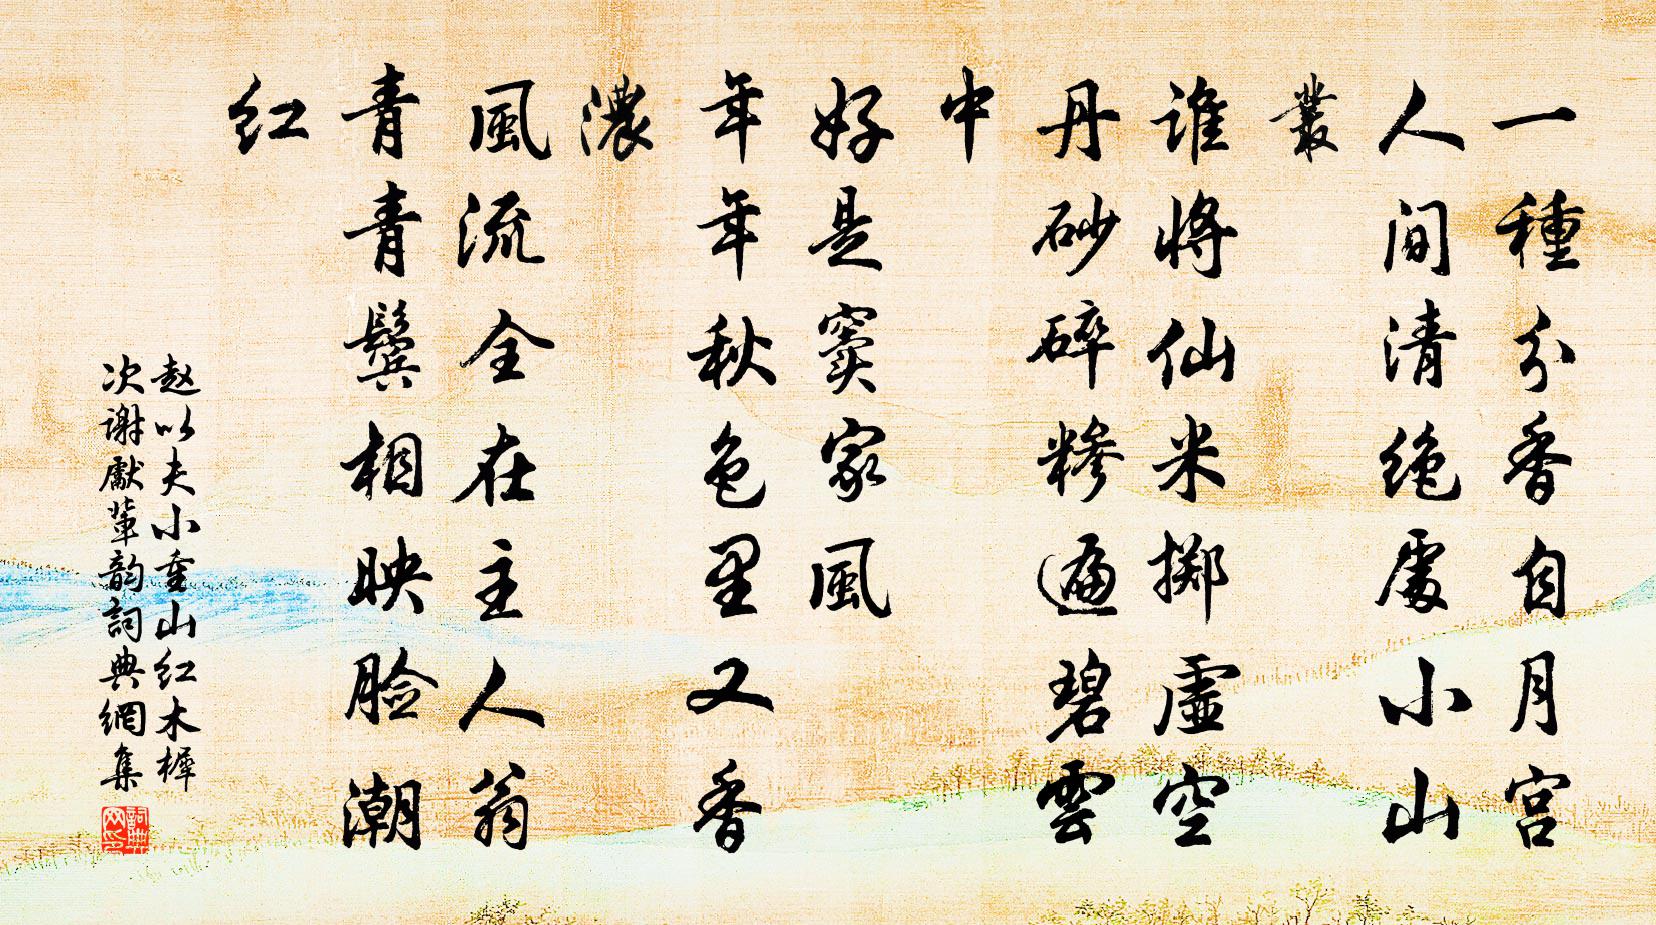 一種分香自月宮
人间清绝處小山
叢
谁將仙米掷虛空
丹砂碎糁遍碧雲
中
好是窦家風
年年秋色里又香
濃
風流全在主人翁
青青鬓相映脸潮
红
赵以夫小重山红木樨
次谢獻輩韵詞典網集
詞典網印